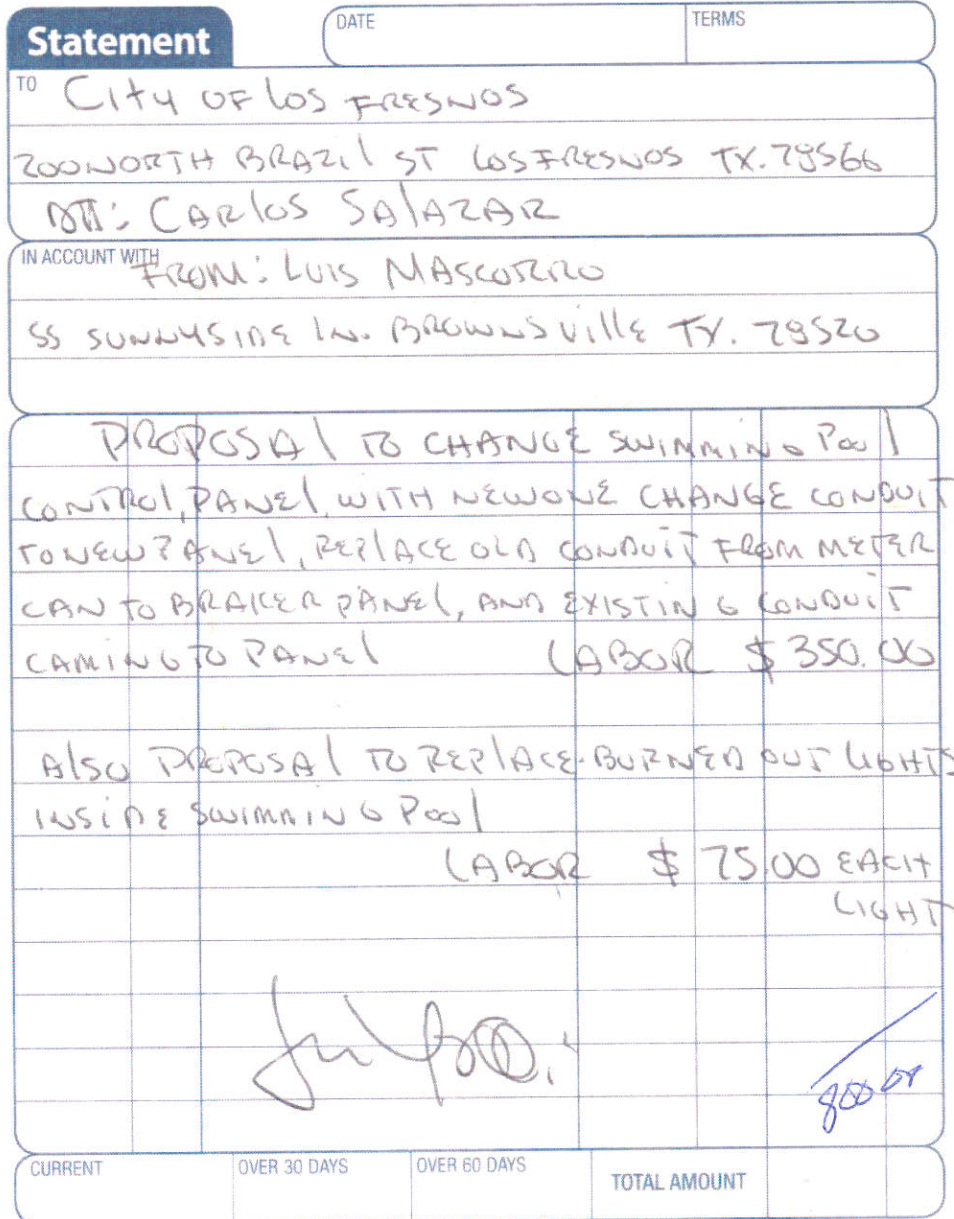 Statement
DATE
TERMS
TO City OF Los FRESNOS
200 NORTH BRAZil ST LOS FRESNOS TX. 78566
ATT: CARlOS SAlAZAR
IN ACCOUNT WITH
FROM: LUIS MASCORRO
55 SUNNYSIDE LN. BROWNSVIllE TX. 78520
PROPOSAl TO CHANGE SWIMMING Pool
CONTROl, PANEl, WITH NEW ONE CHANGE CONDUIT
TO NEW PANEl, REPlACE OLD CONDUIT FROM METER
CAN TO BRAKER PANEl, AND EXISTING CONDUIT
CAMING TO PANEl LABOR $ 350.00
AlSO PROPOSAl TO REPlACE BURNED OUT LIGHTS
INSIDE SWIMMING Pool
LABOR $ 75.00 EACH
LIGHT
CURRENT
OVER 30 DAYS
OVER 60 DAYS
TOTAL AMOUNT